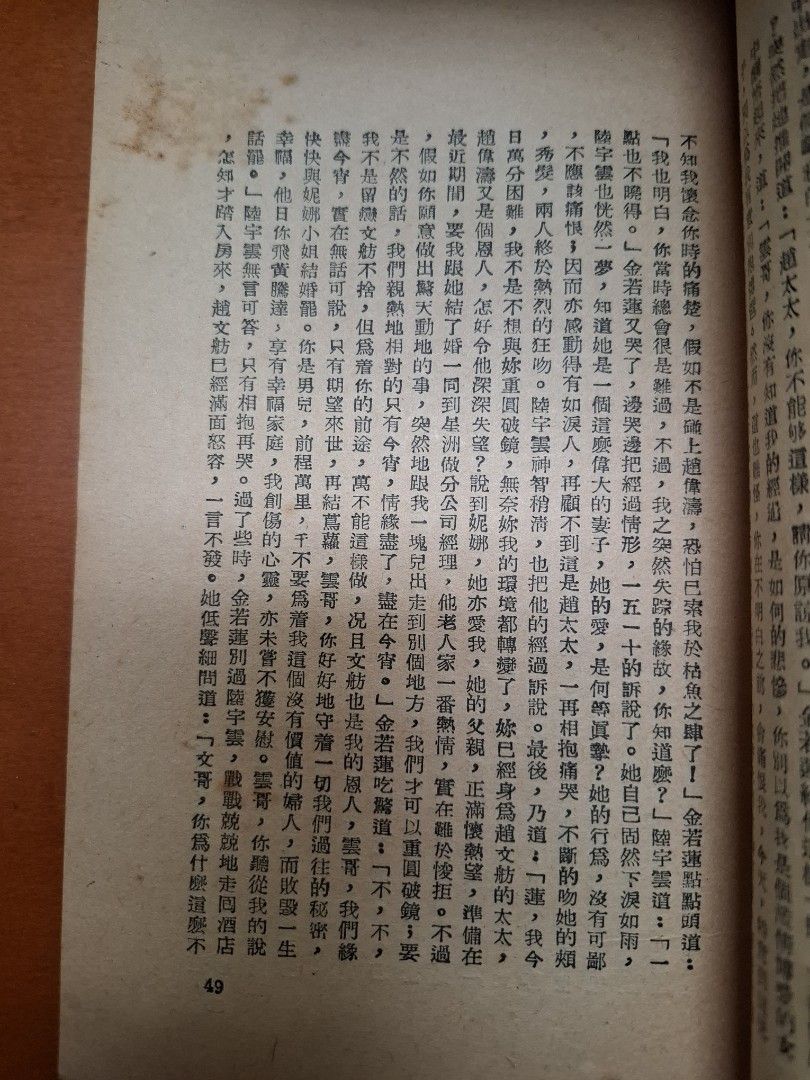 不知我懷念你時的痛楚，假如不是碰上趙偉濤，恐怕已索我於枯魚之肆了！」金若蓮點點頭道：
「我也明白，你當時總會很是難過，不過，我之突然失踪的緣故，你知道麼？」陸宇雲道：「一
點也不曉得。」金若蓮又哭了，邊哭邊把經過情形，一五一十的訴說了。她自己固然下淚如雨，
陸宇雲也恍然一夢，知道她是一個這麼偉大的妻子，她的愛，是何等眞摯？她的行爲，沒有可鄙
，不應該痛恨；因而亦感動得有如淚人，再顧不到這是趙太太，一再相抱痛哭，不斷的吻她的頰
，秀髮，兩人終於熱烈的狂吻。陸宇雲神智稍清，也把他的經過訴說。最後，乃道：「蓮，我今
日萬分困難，我不是不想與妳重圓破鏡，無奈妳我的環境都轉變了，妳已經身爲趙文舫的太太，
趙偉濤又是個恩人，怎好令他深深失望？說到妮娜，她亦愛我，她的父親，正滿懷熱望，準備在
最近期間，要我跟她結了婚一同到星洲做分公司經理，他老人家一番熱情，實在難於悛拒。不過
，假如你願意做出驚天動地的事，突然地跟我一塊兒出走到別個地方，我們才可以重圓破鏡；要
是不然的話，我們親熱地相對的只有今宵，情緣盡了，盡在今宵。」金若蓮吃驚道：「不，不，
我不是留戀文舫不捨，但爲着你的前途，萬不能這樣做，况且文舫也是我的恩人，雲哥，我們緣
盡今宵，實在無話可說，只有期望來世，再結蔦蘿，雲哥，你好好地守着一切我們過往的秘密，
快快與妮娜小姐結婚罷。你是男兒，前程萬里，千不要爲着我這個沒有價值的婦人，而敗毀一生
幸福，他日你飛黃騰達，享有幸福家庭，我創傷的心靈，亦未嘗不獲安慰。雲哥，你聽從我的說
話罷。」陸宇雲無言可答，只有相抱再哭。過了些時，金若蓮別過陸宇雲，戰戰兢兢地走囘酒店
，怎知才踏入房來，趙文舫已經滿面怒容，一言不發。她低聲細問道：「文哥，你爲什麼這麼不
49